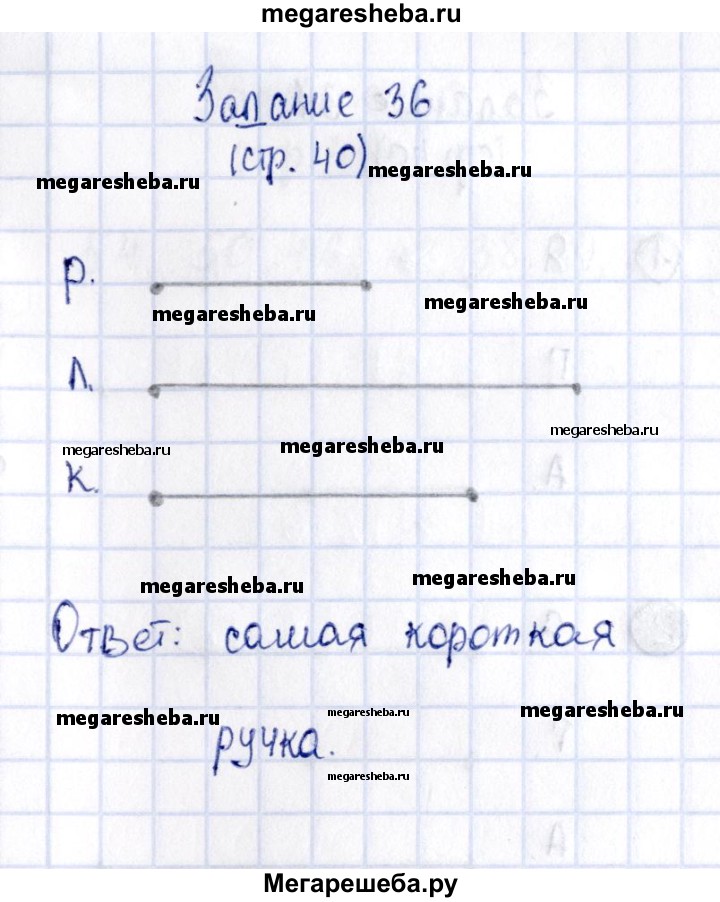 megaresheba.ru
Задание 36
(стр. 40)
megaresheba.ru
megaresheba.ru
р.
megaresheba.ru
megaresheba.ru
л.
megaresheba.ru
megaresheba.ru
megaresheba.ru
к.
megaresheba.ru
megaresheba.ru
Ответ: самая короткая
megaresheba.ru
megaresheba.ru
megaresheba.ru
ручка.
megaresheba.ru
Мегарешеба.ру